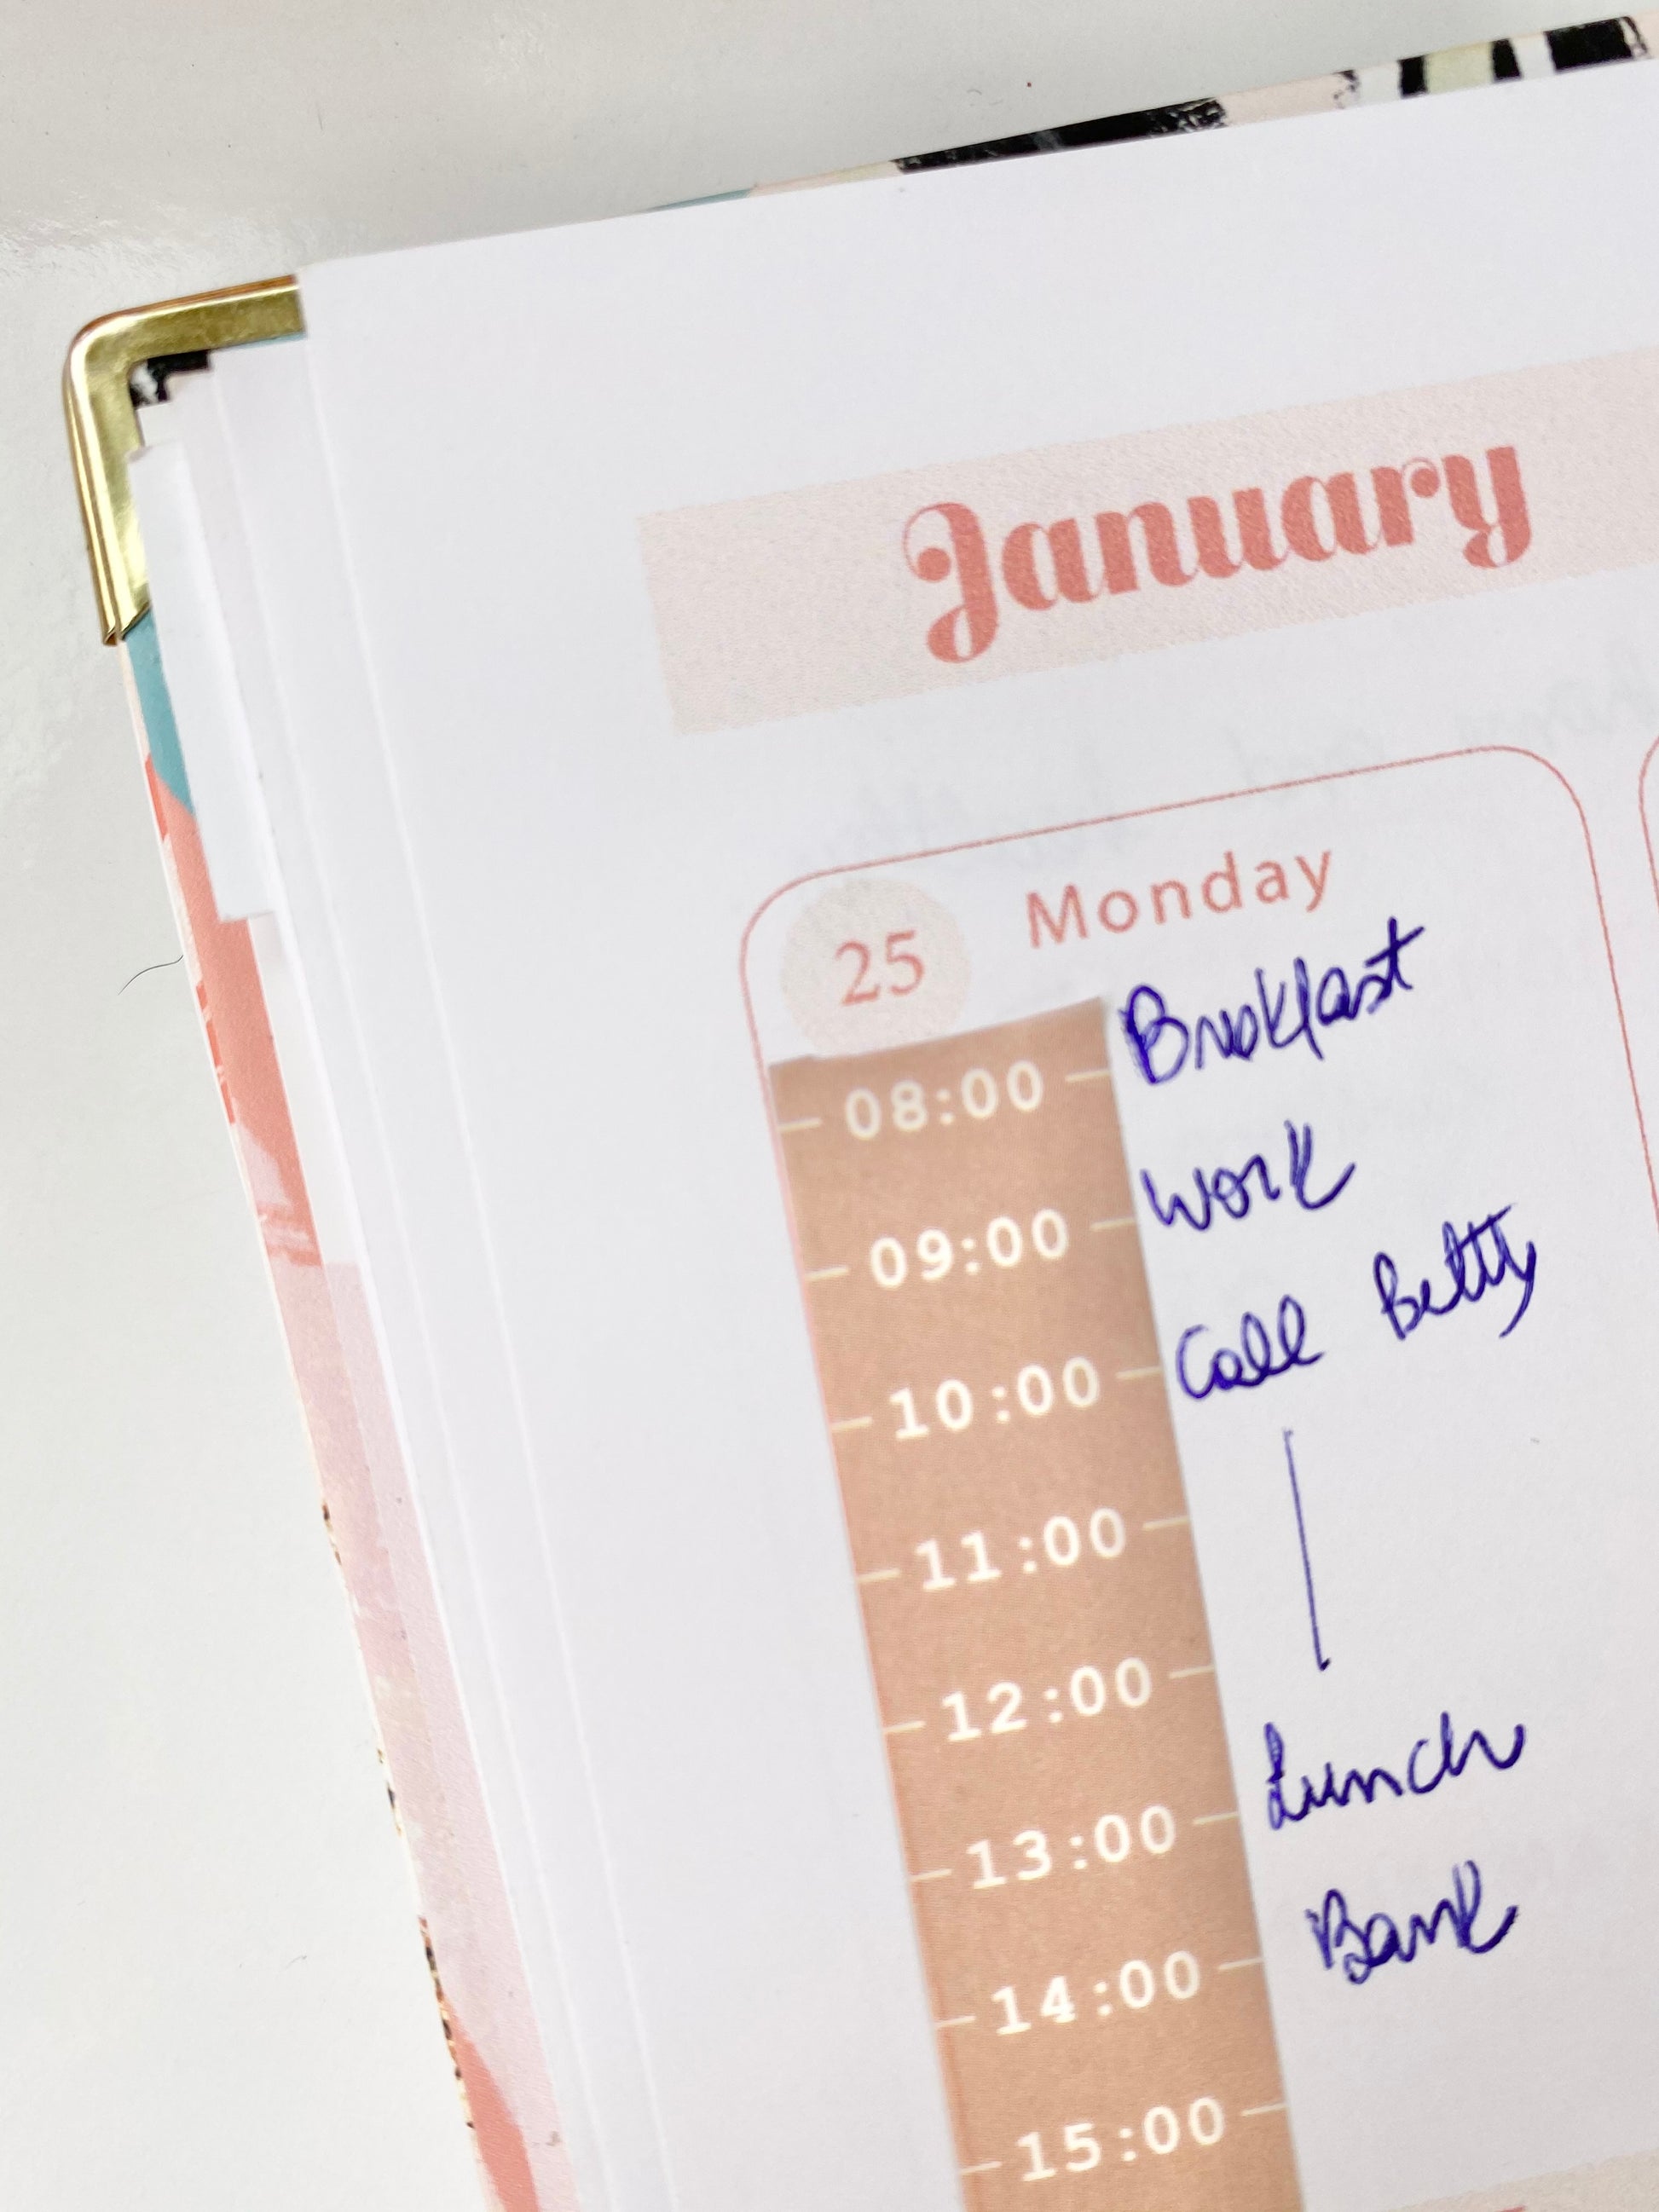 January
25 Monday
Breakfast
08:00
Work
09:00
Call Betty
10:00
11:00
12:00
Lunch
13:00
Bank
14:00
15:00